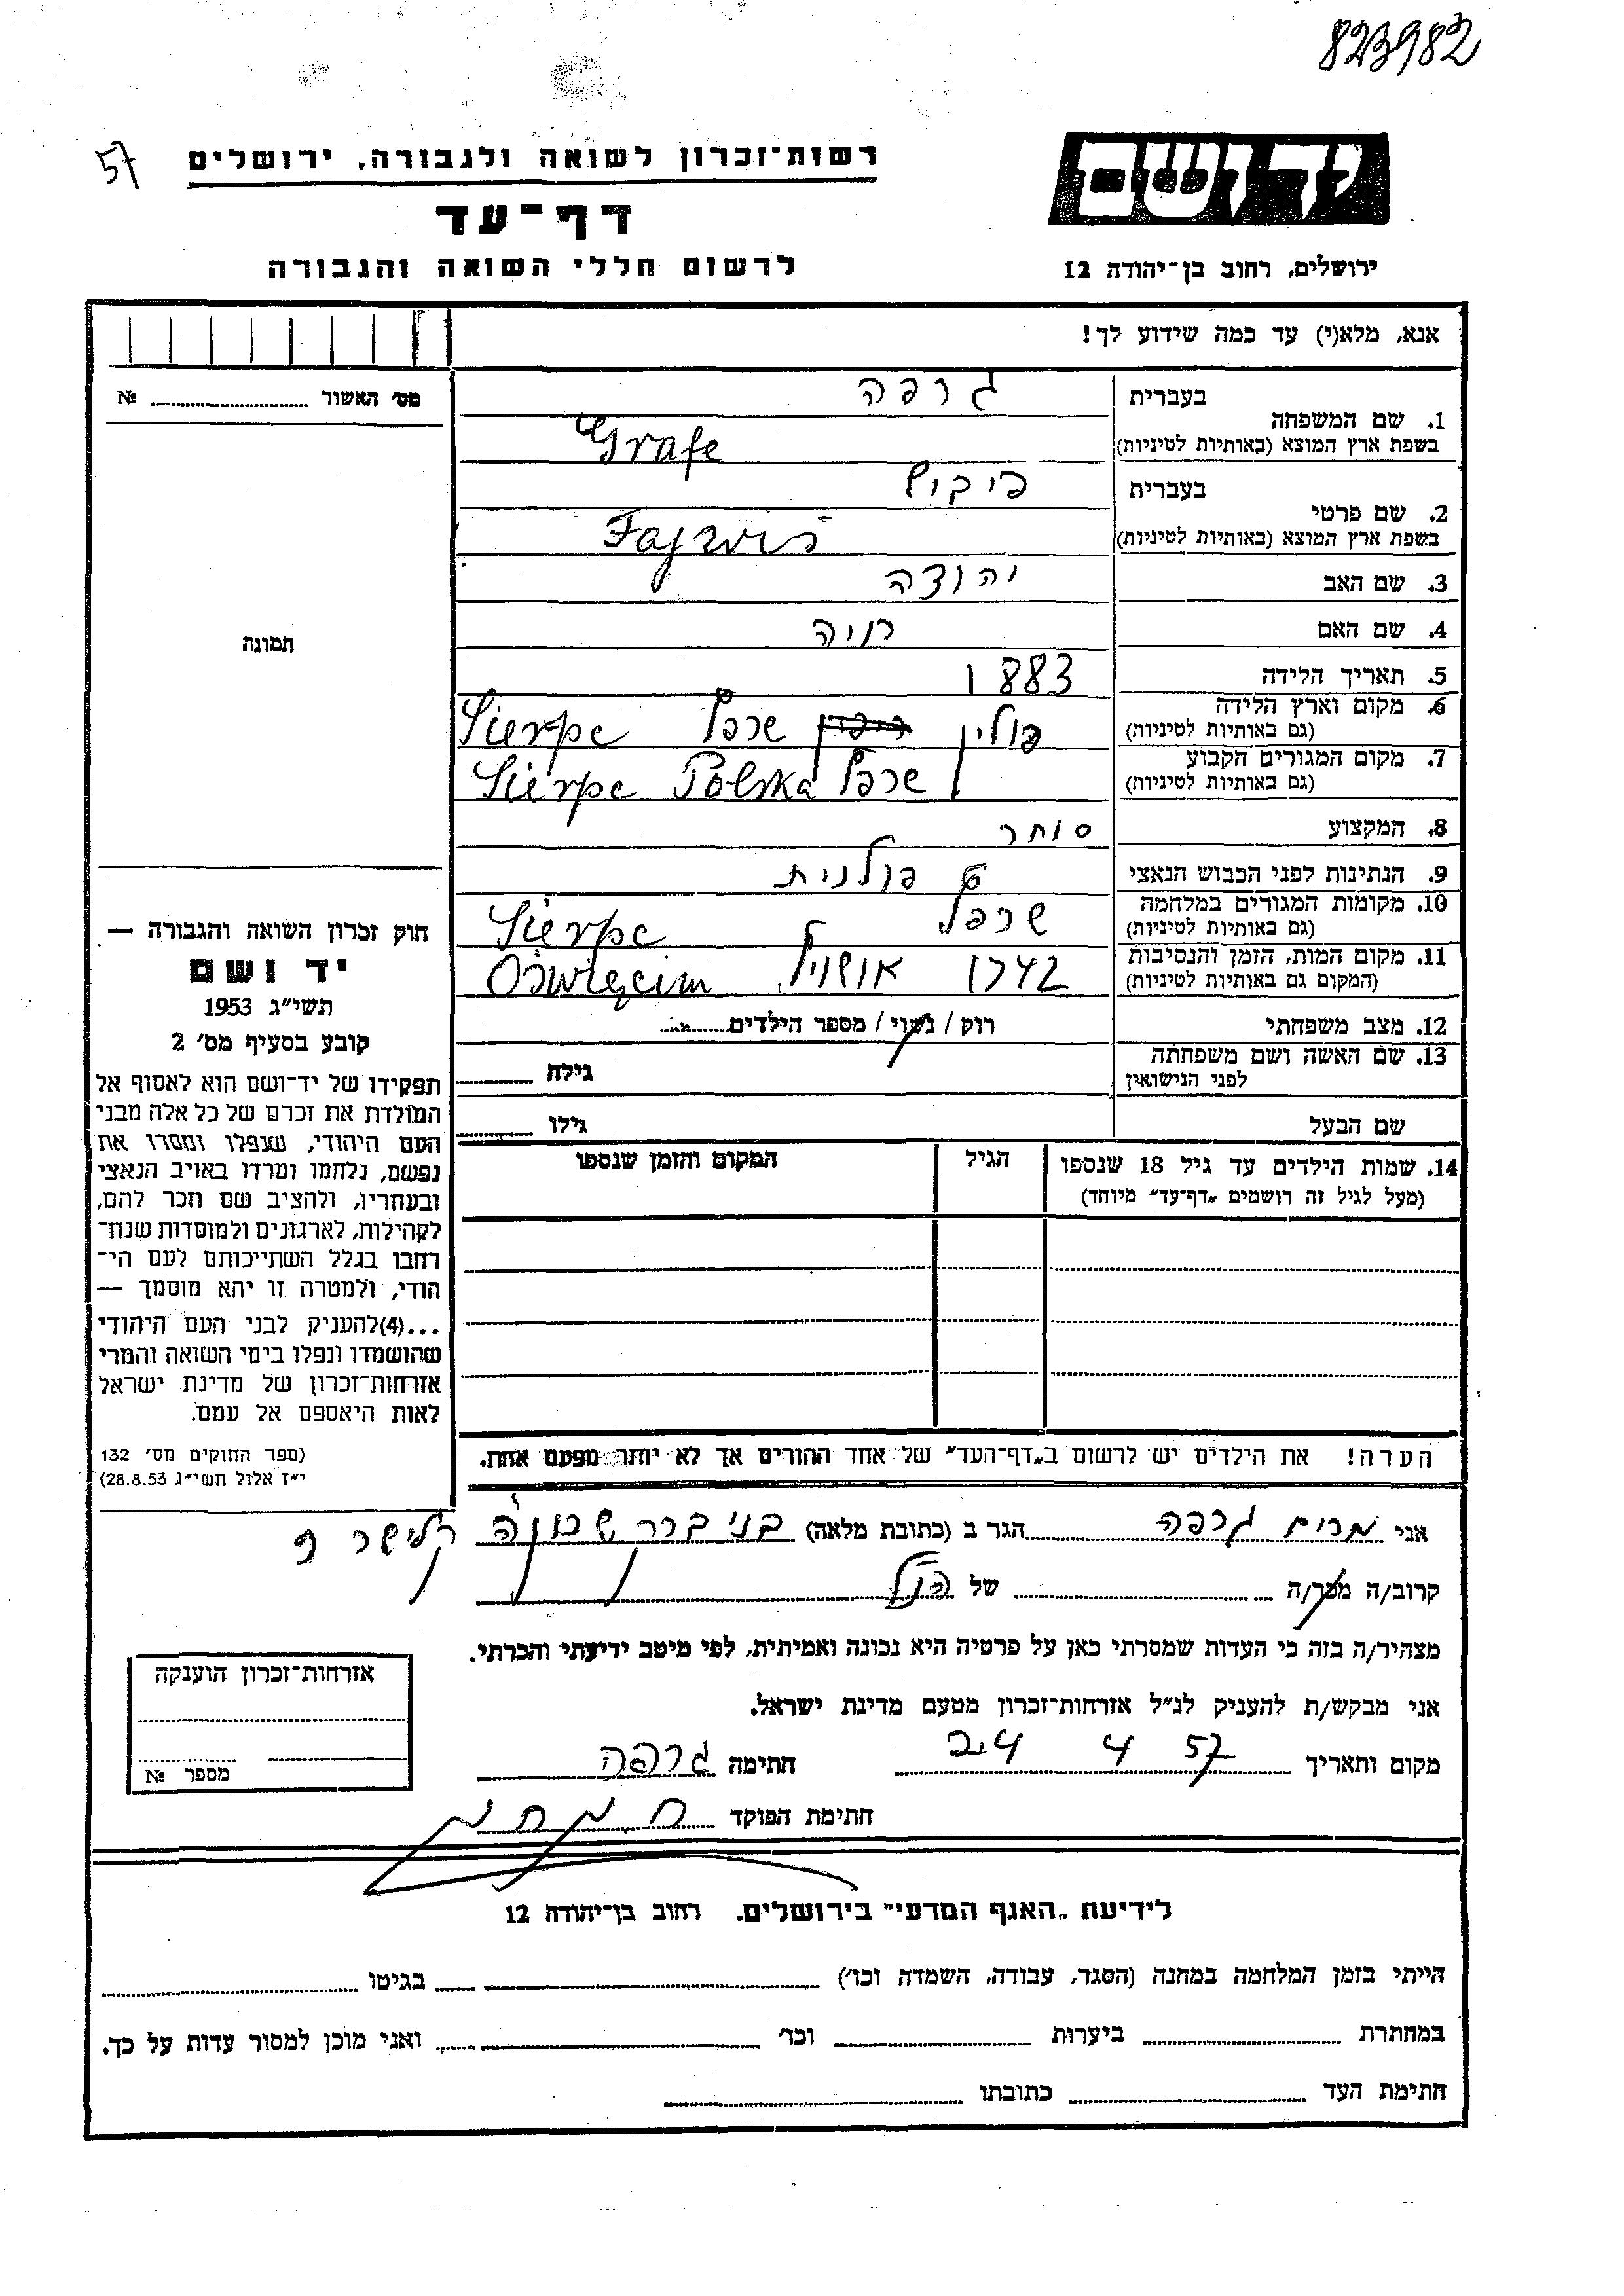 823982
57
רשות־זכרון לשואה ולגבורה, ירושלים
יד ושם
דף־עד
לרשום חללי השואה והגבורה
ירושלים, רחוב בן־יהודה 12
אנא, מלא(י) עד כמה שידוע לך!
מס׳ האשור № 
1. שם המשפחה בעברית גרפה
בשפת ארץ המוצא (באותיות לטיניות) Grafe
2. שם פרטי בעברית פיבוש
בשפת ארץ המוצא (באותיות לטיניות)
3. שם האב יהודה
4. שם האם חיה
5. תאריך הלידה 1883
6. מקום וארץ הלידה (גם באותיות לטיניות) פולין שרפץ Sierpc
7. מקום המגורים הקבוע (גם באותיות לטיניות) שרפץ Sierpc Polska
8. המקצוע סוחר
9. הנתינות לפני הכבוש הנאצי פולנית
10. מקומות המגורים במלחמה (גם באותיות לטיניות) שרפץ Sierpc
11. מקום המות, הזמן והנסיבות (המקום גם באותיות לטיניות) 1942 Oświęcim
12. מצב משפחתי רוק / נשוי / מספר הילדים
13. שם האשה ושם משפחתה לפני הנישואין גילה
שם הבעל גילו
14. שמות הילדים עד גיל 18 שנספו הגיל המקום והזמן שנספו
(מעל לגיל זה רושמים „דף־עד״ מיוחד)
הערה! את הילדים יש לרשום ב„דף־העד״ של אחד ההורים אך לא יותר מפעם אחת.
תמונה
חוק זכרון השואה והגבורה —
יד ושם
תשי״ג 1953
קובע בסעיף מס׳ 2
תפקידו של יד־ושם הוא לאסוף אל
המולדת את זכרם של כל אלה מבני
העם היהודי, שנפלו ומסרו את
נפשם, נלחמו ומרדו באויב הנאצי
ובעוזריו, ולהציב שם וזכר להם,
לקהילות, לארגונים ולמוסדות שנח־
רבו בגלל השתייכותם לעם הי־
הודי, ולמטרה זו יהא מוסמך —
...(4) להעניק לבני העם היהודי
שהושמדו ונפלו בימי השואה והמרי
אזרחות־זכרון של מדינת ישראל
לאות היאספם אל עמם.
(ספר החוקים מס׳ 132
י״ז אלול תשי״ג 28.8.53)
אני מרים גרפה הגר ב (כתובת מלאה) בני ברק שכונה
קרוב/ה מכר/ה של הנ״ל
מצהיר/ה בזה כי העדות שמסרתי כאן על פרטיה היא נכונה ואמיתית, לפי מיטב ידיעתי והכרתי.
אני מבקש/ת להעניק לנ״ל אזרחות־זכרון מטעם מדינת ישראל.
מקום ותאריך 24 4 57 חתימה גרפה
חתימת הפוקד
אזרחות־זכרון הוענקה
מספר №
לידיעת „האגף המדעי״ בירושלים. רחוב בן־יהודה 12
הייתי בזמן המלחמה במחנה (הסגר, עבודה, השמדה וכו׳) בגיטו
במחתרת ביערות וכו׳ ואני מוכן למסור עדות על כך.
חתימת העד כתובתו